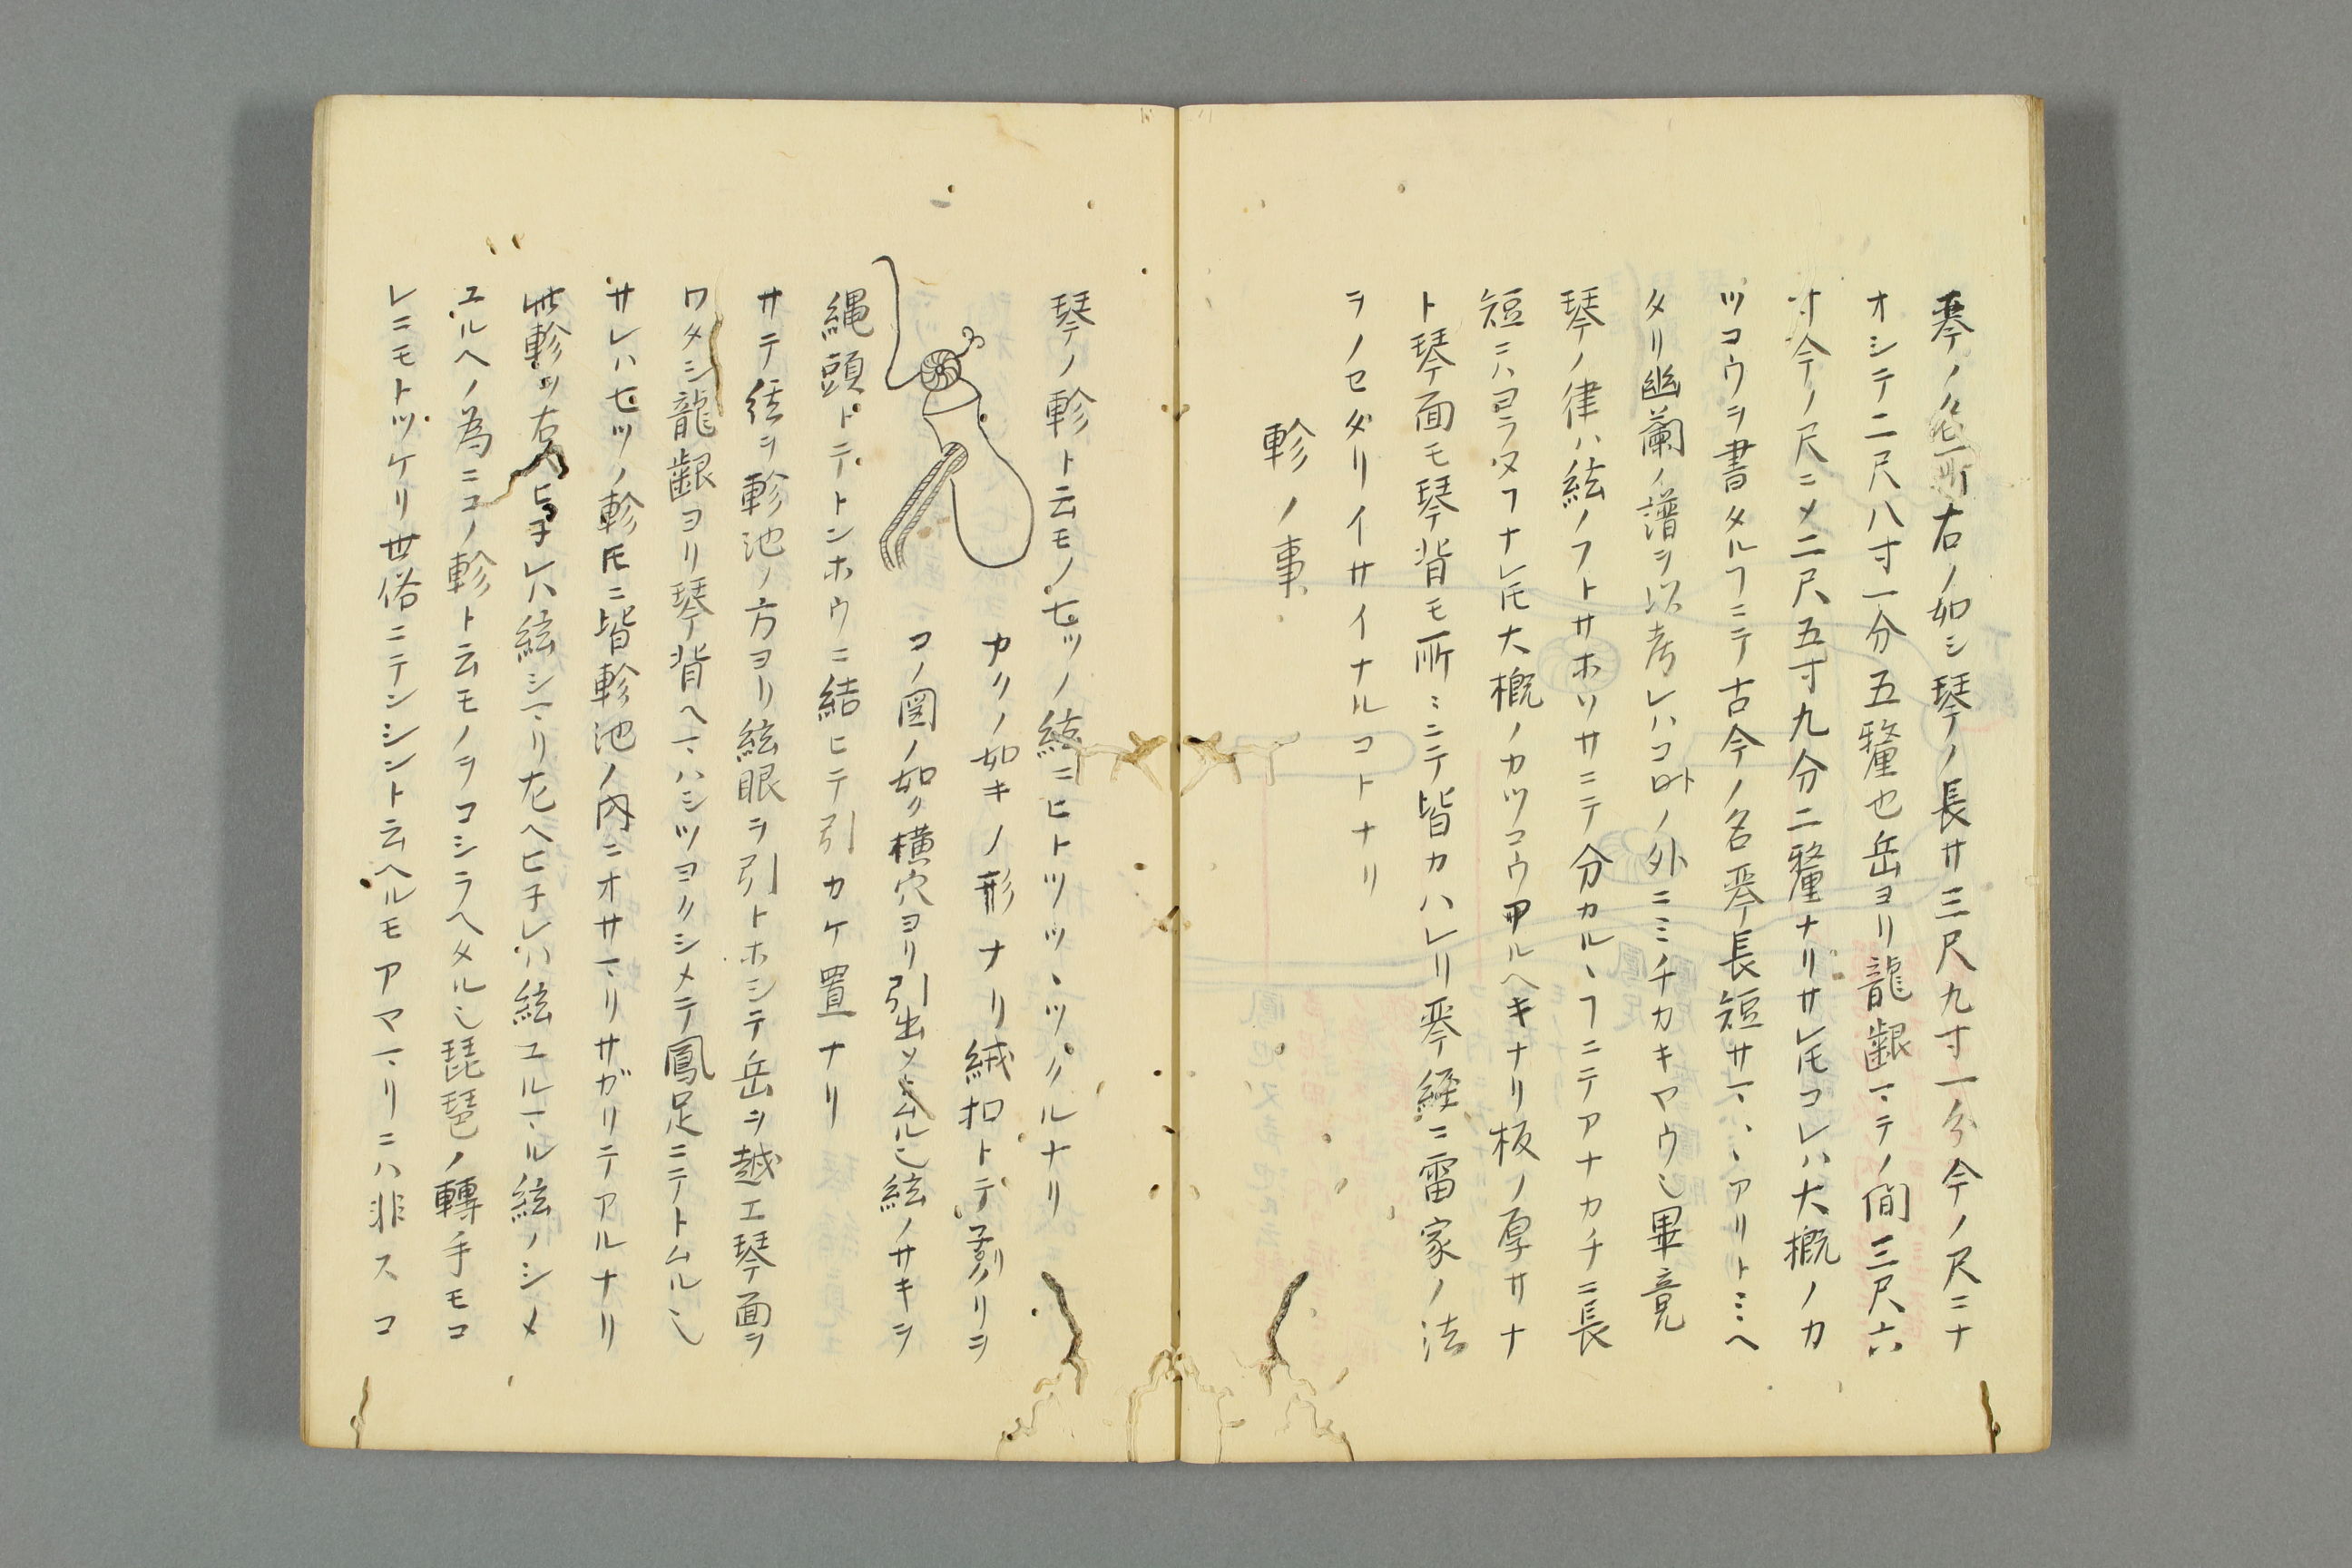 琴ノ名所右ノ如シ琴ノ長サ三尺九寸一分今ノ尺ニナ
オシテ二尺八寸一分五釐也岳ヨリ龍齦マテノ間三尺六
寸今ノ尺ニメ二尺五寸九分二釐ナリサレ𪜈コレハ大概ノカ
ツコウヲ書タルヿニテ古今ノ名琴長短サマ〻アリトミヘ
タリ幽蘭ノ譜ヲ以考レハコノ外ニミチカキヤウ也畢竟
琴ノ律ハ絃ノフトサホソサニテ分カルヽヿニテアナカチニ長
短ニハヨラヌヿナレ𪜈大概ノカツコウ甲ルヘキナリ板ノ厚サナ
ト琴面モ琴背モ所〻ニテ皆カハレリ琴経ニ雷家ノ法
ヲノセタリイサイナルコトナリ
軫ノ事
琴ノ軫ト云モノ七ツノ絃ニヒトツツヽツクルナリ
カクノ如キノ形ナリ絨扣トテ刻リヲ
コノ図ノ如ク横穴ヨリ引出ソトムル也絃ノサキヲ
縄頭トテトンホウニ結ヒテ引カケ置ナリ
サテ絃ヲ軫池ノ方ヨリ絃眼ヲ引トホシテ岳ヲ越エ琴面ヲ
ワタシ龍齦ヨリ琴背ヘマハシツヨクシメテ鳳足ニテトムル也
サレハ七ツノ軫𪜈ニ皆軫池ノ内ニオサマリサガリテアルナリ
此軫ヲ右ヘヒチレハ絃シマリ左ヘヒチレハ絃ユルマル絃ノシメ
ユルヘノ為ニコノ軫ト云モノヲコシラヘタル也琵琶ノ轉手モコ
レニモトツケリ世俗ニテンシント云ヘルモアママリニハ非スコ